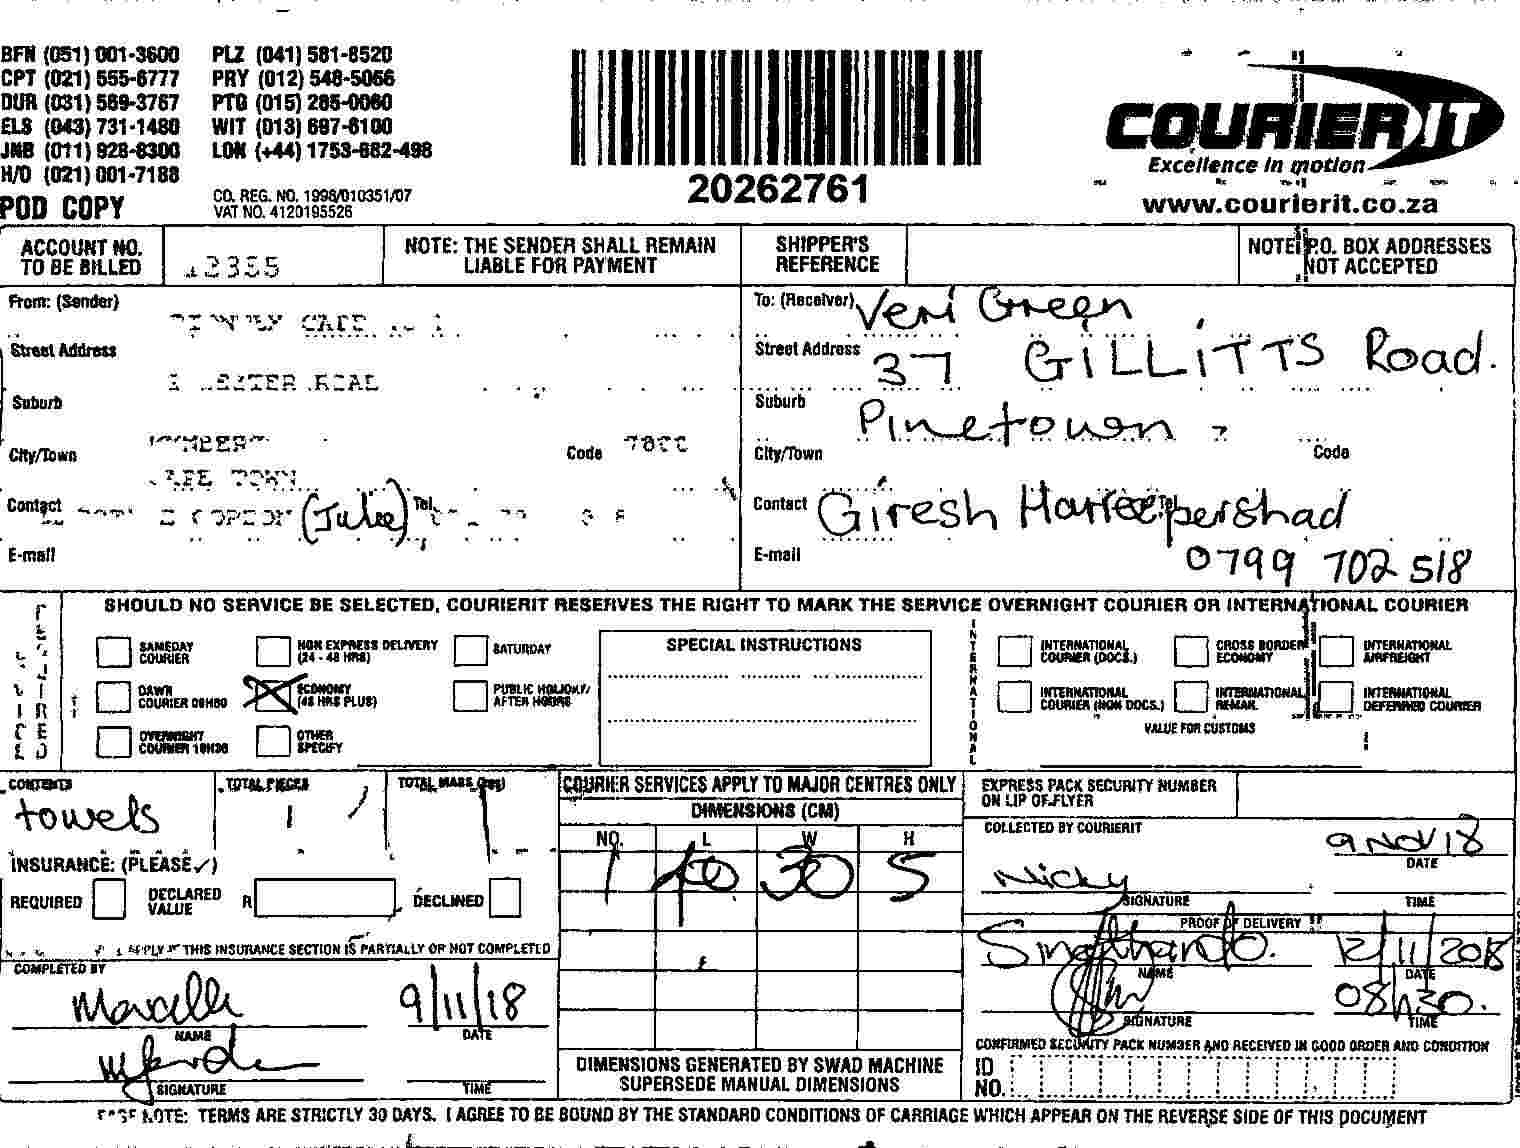 BFN (051) 001-3600 PLZ (041) 581-8520
CPT (021) 555-6777 PRY (012) 548-5066
DUR (031) 569-3767 PTG (015) 285-0060
ELS (043) 731-1480 WIT (013) 697-6100
JNB (011) 928-6300 LON (+44) 1753-682-498
H/O (021) 001-7188
CO. REG. NO. 1998/010351/07
POD COPY VAT NO. 4120195526
20262761
COURIER IT
Excellence in motion
www.courierit.co.za
ACCOUNT NO. TO BE BILLED 13355
NOTE: THE SENDER SHALL REMAIN LIABLE FOR PAYMENT
SHIPPER'S REFERENCE
NOTE: P.O. BOX ADDRESSES NOT ACCEPTED
From: (Sender)
Street Address
ROAD
Suburb
City/Town Code
TOWN
Contact GORDON (Julie) Tel.
E-mail
To: (Receiver) Veri Green
Street Address 37 GILLITTS Road.
Suburb Pinetown
City/Town Code
Contact Giresh Harreepershad Tel.
E-mail 0799 702 518
SHOULD NO SERVICE BE SELECTED, COURIERIT RESERVES THE RIGHT TO MARK THE SERVICE OVERNIGHT COURIER OR INTERNATIONAL COURIER
SAMEDAY COURIER
NON EXPRESS DELIVERY (24 - 48 HRS)
SATURDAY
DAWN COURIER 08H00
ECONOMY (48 HRS PLUS)
PUBLIC HOLIDAY/ AFTER HOURS
OVERNIGHT COURIER 10H30
OTHER SPECIFY
SPECIAL INSTRUCTIONS
INTERNATIONAL
INTERNATIONAL COURIER (DOCS.)
CROSS BORDER ECONOMY
INTERNATIONAL AIRFREIGHT
INTERNATIONAL COURIER (NON DOCS.)
INTERNATIONAL REMAIL
INTERNATIONAL DEFERRED COURIER
VALUE FOR CUSTOMS
CONTENTS towels
TOTAL PIECES 1
TOTAL MASS (kgs) 1
INSURANCE: (PLEASE ✓)
REQUIRED DECLARED VALUE R DECLINED
APPLY IF THIS INSURANCE SECTION IS PARTIALLY OR NOT COMPLETED
COMPLETED BY
9/11/18
NAME DATE
SIGNATURE TIME
COURIER SERVICES APPLY TO MAJOR CENTRES ONLY
DIMENSIONS (CM)
NO. L W H
1 40 30 5
DIMENSIONS GENERATED BY SWAD MACHINE
SUPERSEDE MANUAL DIMENSIONS
EXPRESS PACK SECURITY NUMBER ON LIP OF FLYER
COLLECTED BY COURIERIT
Nicky 9 NOV 18
DATE
SIGNATURE TIME
PROOF OF DELIVERY
12/11/2018
NAME DATE
08h30.
SIGNATURE TIME
CONFIRMED SECURITY PACK NUMBER AND RECEIVED IN GOOD ORDER AND CONDITION
ID NO.
NOTE: TERMS ARE STRICTLY 30 DAYS. I AGREE TO BE BOUND BY THE STANDARD CONDITIONS OF CARRIAGE WHICH APPEAR ON THE REVERSE SIDE OF THIS DOCUMENT